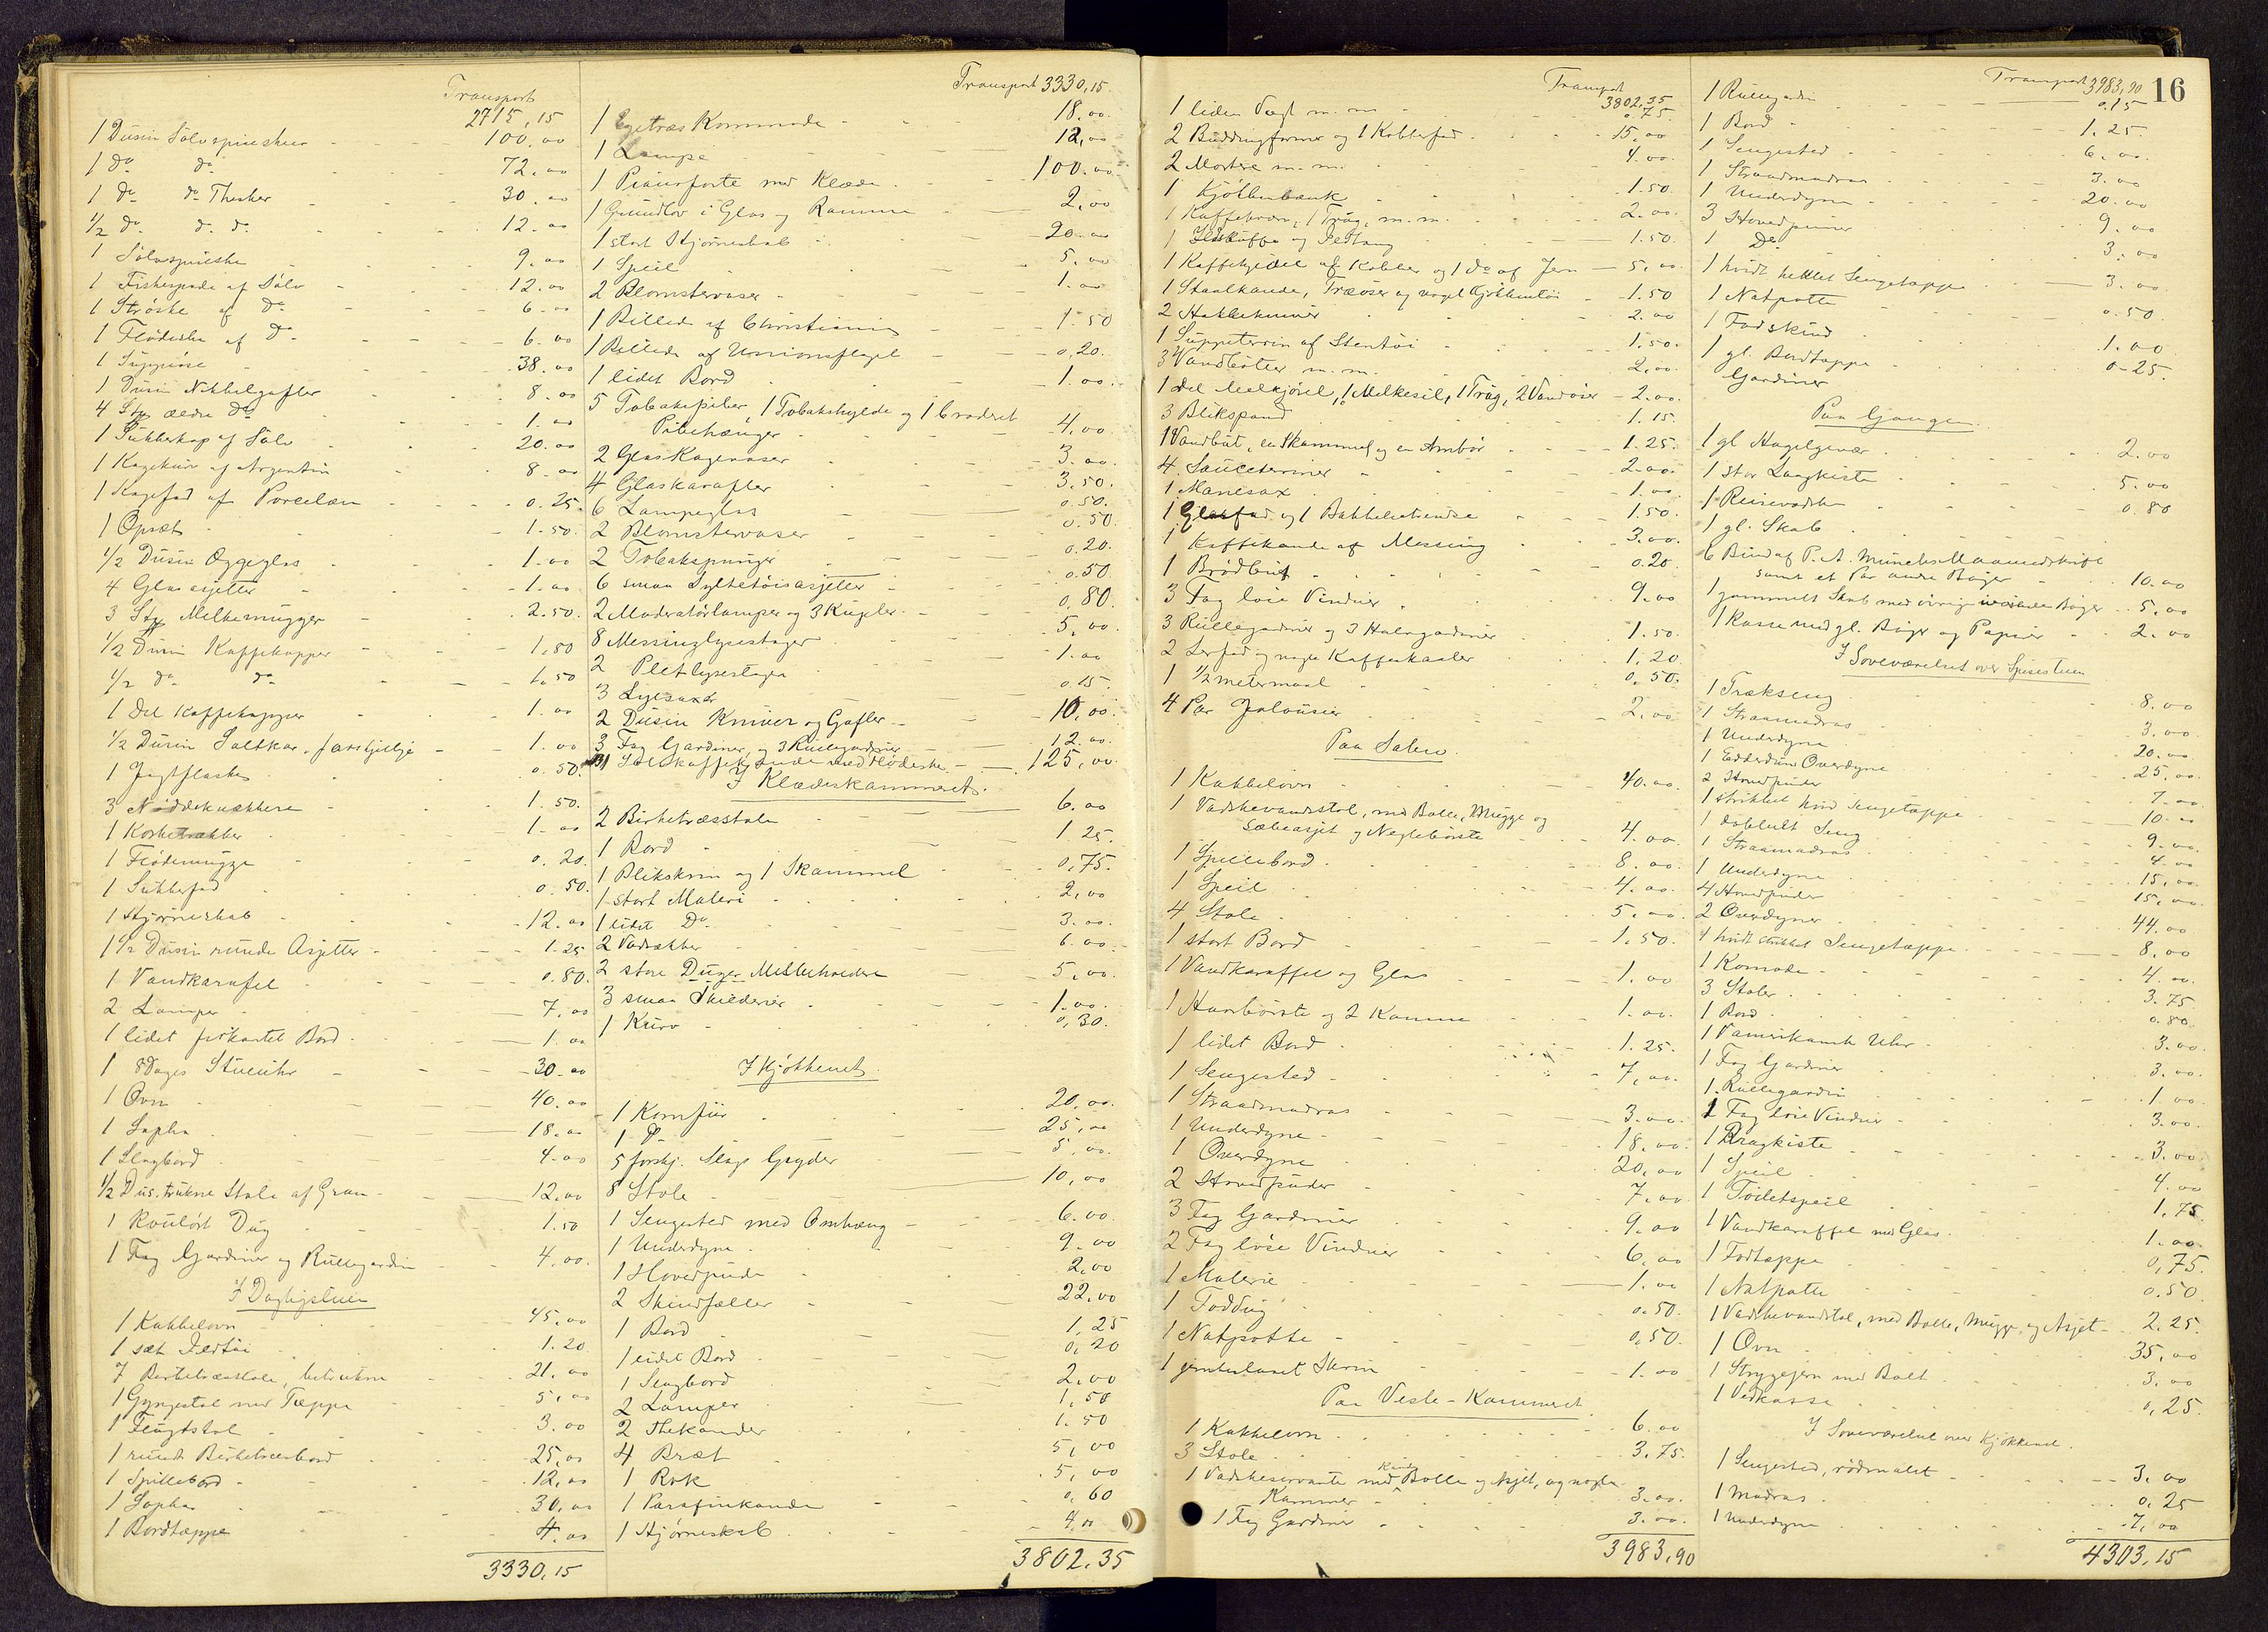 Transport
2715,15
1 Dusin Sölvspiseskeer 100.00
1 do do 72.00
1 do do Theskeer 30.00
1/2 do do do 12.00
1 Sölvspiseske 9.00
1 Fiskespade af Sölv 12.00
1 Ströske af do 6.00
1 Flödeske af do 6.00
1 Suppeöse 38.00
1 Dusin Nikkelgafler 8.00
4 Stk ældre do 1.00
1 Sukkerkop af Sölv 20.00
1 Kagekurv af Argentin 8.00
1 Kagefad af Porcelæn 0.25
1 Opsæts 1.50
1/2 Dusin Æggeglas 1.00
4 Glasasjetter 1.00
3 Stk Melkemugger 2.50
1/2 Dusin Kaffekopper 1,80
1/2 do do 1,50
1 Del Kaffekopper 1.00
1/2 Dusin Saltkar, forskjellige 1.00
1 Jagtflaske 0.50
3 Nöddeknækkere 1.50
1 Korketrækker 1.00
1 Flödemugge 0.20
1 Sukkerfad 0.50
1 Hjörneskab 12.00
1 1/2 Dusin runde Asjetter 1.25
1 Vandkarafel 0.80
2 Lamper 7,00
1 lidet firkantet Bord 1.00
1 8 Dages Stueuhr 30.00
1 Ovn 40.00
1 Sopha 18.00
1 Slagbord 4.00
1/2 Dus. trukne Stole af Gran 12.00
1 Koulört Dug 1.50
1 Fag Gardiner og Rullegardin 4.00
I Dagligstuen
1 Kakkelovn 45.00
1 sæt Ildtöi 1.20
7 Birketræsstole, betrukne 21.00
1 Gyngestol med Tæppe 5.00
1 Flugtstol 3.00
1 rundt Birketræsbord 25.00
1 Spillebord 12,00
1 Sopha 30,00
1 Bordtæppe 4.00
3330,15
Transport 3330,15
1 Egetræs Kommode 18.00
1 Lampe 12,00
1 Pianoforte med Klæde 100.00
1 Grundlov i Glas og Ramme 2,00
1 stort Hjörneskab 20.00
1 Speil 5.00
2 Blomstervaser 1.00
1 Billede af Christiania 1.50
1 Billede af Unionsflaget 0,20
1 lidet Bord 1.00
5 Tobakspiber, 1 Tobakshylde og 1 broderet
Pibehænger 4.00
2 Glas Kagevaser 3.00
4 Glaskarafler 3.50
6 Lampeglas 0.50
2 Blomstervaser 0.50
2 Tobakspunger 0.20
6 smaa Syltetöisasjetter 0.50
2 Moderatörlamper og 3 Kugler 0,80
8 Messinglysestager 5,00
2 Pletlysestager 1.00
3 Lysesaxer 0.15
2 Dusin Kniver og Gafler 10,00
3 Fag Gardiner og 3 Rullegardiner 12.00
1 Sölvkaffekande med Flödeske 125,00
I Klædeskammeret
2 Birketræsstole 6.00
1 Bord 1.25
1 Blikskrin og 1 Skammel 0,75
1 stort Maleri 2,00
1 lidet Do 3.00
2 Vadsækker 6.00
2 store Duger Mellembroderi 5,00
3 smaa Skilderier 1.00
1 Kurv 0,30
I Kjökkenet
1 Komfur 20,00
1 Do 25,00
5 forskj. Slags Gryder 5,00
8 Stole 10,00
1 Sengested med Omhæng 6.00
1 Underdyne 9.00
1 Hovedpude 2,00
2 Skindfæller 22.00
1 Bord 1,25
1 lidet Bord 0,20
1 Slagbord 2,00
2 Lamper 1,50
2 Thekander 1.50
4 Bræt 5,00
1 Rok 5,00
1 Parafinkande 0,60
1 Hjörneskab 4.00
3802.35
Transport
3802,35
1 liden Vægt m. m. 0.75
2 Buddingformer og 1 Kobberfad 15,00
2 Mortere m. m. 4.00
1 Kjökkenbænk 1.50
1 Kaffebrænder, 1 Traug, m. m. 2.00
1 Ildskuffe og Ildtang 1.50
1 Kaffekjedel af Kobber og 1 do af Jern 5,00
1 Staalkande, Træöser og noget Kjökkentöi 1.50
2 Hakkekniver 2.00
1 Suppeterrin af Stentöi 1,50
3 Vandbötter m. m. 2,00
1 del Melkjörel, 1 Melkesil, 1 Traug, 2 Vandöser 2.00
3 Blikspand 1.15
1 Vandbut, en Skammel og en Ambör 1.25
4 Sauceterriner 2.00
1 Manesax 1.00
1 Glasfad og 1 Bakkelsetrendse 1.50
1 Kaffekande af Messing 3.00
1 Brödbut 0.20
3 Fag löse Vinduer 9.00
3 Rullegardiner og 3 Halvgardiner 1.50
2 Lerfad og nogle Kaffeskaaler 1,20
1 1/2 metermaal 0,50
4 Par Jalousier 2,00
Paa Salen
1 Kakkelovn 40.00
1 Vaskevandstol, med Bolle, Mugge og
Sæbeasjet og Neglebörste 4.00
1 Spillebord 8.00
1 Speil 4.00
4 Stole 5,00
1 stort Bord 1,50
1 Vandkaraffel og Glas 1.00
1 Haarbörste og 2 Kamme 1.00
1 lidet Bord 1.25
1 Sengested 7,00
1 Straamadras 3.00
1 Underdyne 18.00
1 Overdyne 20,00
2 Hovedpuder 7.00
3 Fag Gardiner 9.00
2 Fag löse Vinduer 6,00
1 Malerie 1.00
1 Foddug 0.50
1 Natpotte 0,50
1 jernbeslaaet Skrin 1.00
Paa Vesle-Kammeret
1 Kakkelovn 6.00
3 Stole 3,75
1 Vadskeservante med Kande Bolle og Asjet, og nogle
Kammer 3.00
1 Fag Gardiner 3.00
3983,90
Transport 3983,90
16
1 Rullegardin 0,15
1 Bord 1.25
1 Sengested 6.00
1 Straamadras 3.00
1 Underdyne 20.00
3 Hovedpuder 9.00
1 Do 3.00
1 hvidt heklet Sengetæppe 3.00
1 Natpotte 0.50
1 Fodskind 1.00
1 gl. Bordtæppe 0.25
Gardiner
Paa Gangen
1 gl Hagelgevær 2.00
1 stor Laagkiste 5.00
1 Reisevadsæk 0.80
1 gl. Skab
6 Bind af P. A. Munchs Maanedskrift
samt et Par andre Böger 10.00
1 gammelt Skab med övrige Böger 5,00
1 Kasse med gl. Böger og Papirer 2.00
I Soveværelset over Spisestuen
1 Trækseng 8.00
1 Straamadras 3.00
1 Underdyne 20.00
1 Edderduns Overdyne 25.00
2 Hovedpuder 7.00
1 strikket hvid Sengetæppe 10.00
1 dobbelt Seng 9.00
1 Straamadras 4.00
1 Underdyne 15,00
4 Hovedpuder 15,00
2 Overdyner 44.00
1 hvidt strikket Sengetæppe 8,00
1 Komode 4.00
3 Stoler 3.75
1 Bord 0.80
1 amerikansk Uhr 3.00
1 Fag Gardiner 3.00
1 Rullegardin 1.00
1 Fag löse Vinduer 3.00
1 Dragkiste 3.00
1 Speil 4.00
1 Toiletspeil 1,75
1 Vandkaraffel med Glas 1.00
1 Fodtæppe 0,75
1 Natpotte 0.50
1 Vadskevandstol, med Bolle, Mugge og Asjet 2.25
1 Ovn 35,00
1 Strygejern med Bolt 3.00
1 Vedkasse 0,25
I Soveværelset over Kjökkenet
1 Sengested, rödmalet 3.00
1 Madras 0.25
1 Underdyne 7,00
4303,15